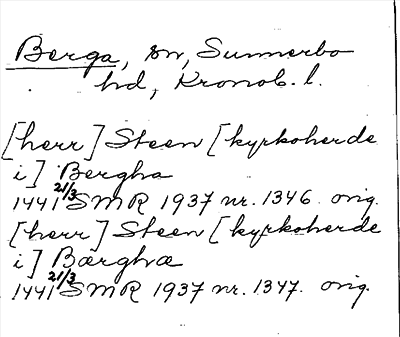 Berga, sn, Sunnerbo
hd, Kronob. l.
[herr] Steen [kyrkoherde
i] Bergha
1441 21/3 SMR 1937 nr. 1346. orig.
[herr] Steen [kyrkoherde
i] Bærghæ
1441 21/3 SMR 1937 nr. 1347. orig.